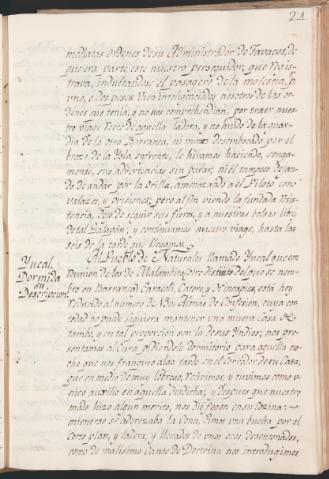 21
mediatas ordenes de su Administrador de Tavacos, de
que era parte este nuestro perseguidor, que regis-
trava, indultandose el pasagero de la molestia, p.r
uno, o dos pesos. Vien inteligenciados nosotros de las or-
denes que tenia, y no nos comprehendian, por traer nues-
tro viage recto de aquella ladera, y no havido de la guar-
dia de la otra Barranca, ni menos desembocado por el
brazo de la Ysla enfrente, le hivamos haciendo,
mente, sus advertencias sin parar; ni el tampoco dejan-
do de andar por la orilla, amenazando a el Piloto con
valazos, y prisiones; pero al fin viendo la fundada Resis-
tencia, dejo de seguir sus fieros, y a nuestras bolsas libres
de tal Galapan; y continuamos nuestro viage, hasta las
seis de la tarde que llegamos.
Yucal,
Dormida
su
Descripcion.
Al Pueblo de Naturales llamado Yucal que con
reunion de los de Malambito, otro distinto del que se nom-
bro en Barranca Caracoli, Cateo, y Menchiques, está hoy
reducido al numero de 430 Almas de Confesion, cuya cor-
tedad no puede siquiera mantener una misera Casa de
tambo, y en tal proporcion son la de sus Yndios; nos pre-
sentamos al Cura pidiendole dormitorio para aquella no-
che que nos franqueo algo tarde en el Corredor de su Casa,
que en medio de muy libre, recivimos, y tuvimos como u-
nico auxilio en aquella desdicha; y despues que nuestro
trato hizo algun merito, nos dio fuego en su Cozina:
mientras se aderezaba la Cena, dimos una buelta, por el
corto plan, y ladera, y llevados de unos ecos desentonados,
como de malisimo Canto de Doctrina nos introdugimos